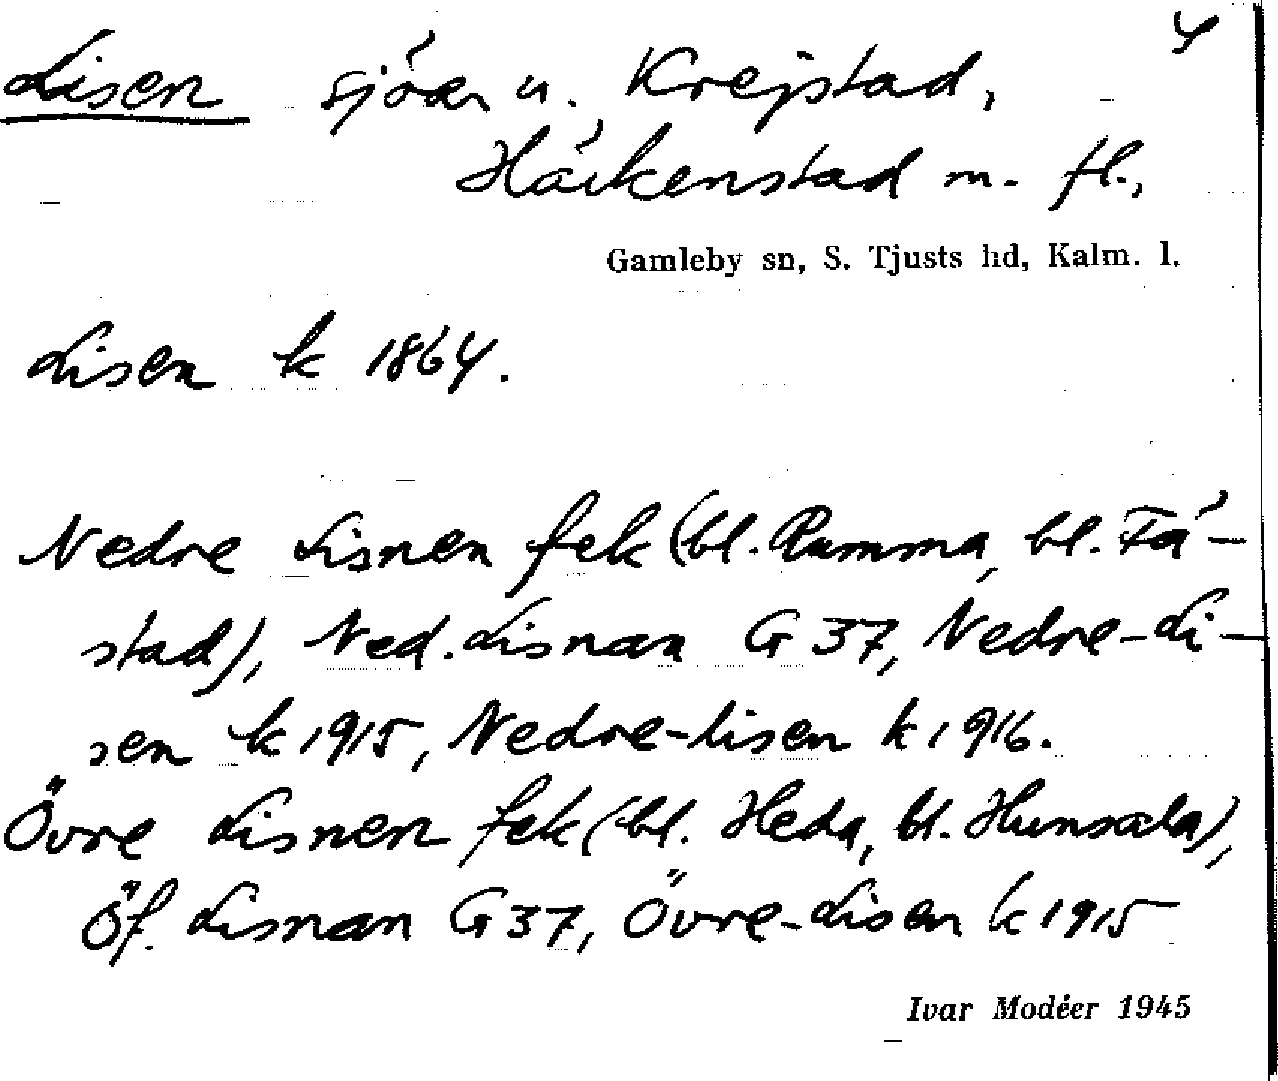 4
Lisen sjöar u. Krejstad,
Håckenstad m. fl.,
Gamleby sn, S. Tjusts hd, Kalm. l.
Lisen k 1864.
Nedre Lisnen fek (bl. Rumma, bl. Få-
stad), Ned. Lisnan G 37, Nedre-Li-
sen k 1915, Nedre-lisen k 1916.
Övre Lisnen fek (bl. Heda, bl. Hunsala),
Öf. Lisnan G 37, Övre-Lisen k 1915
Ivar Modéer 1945